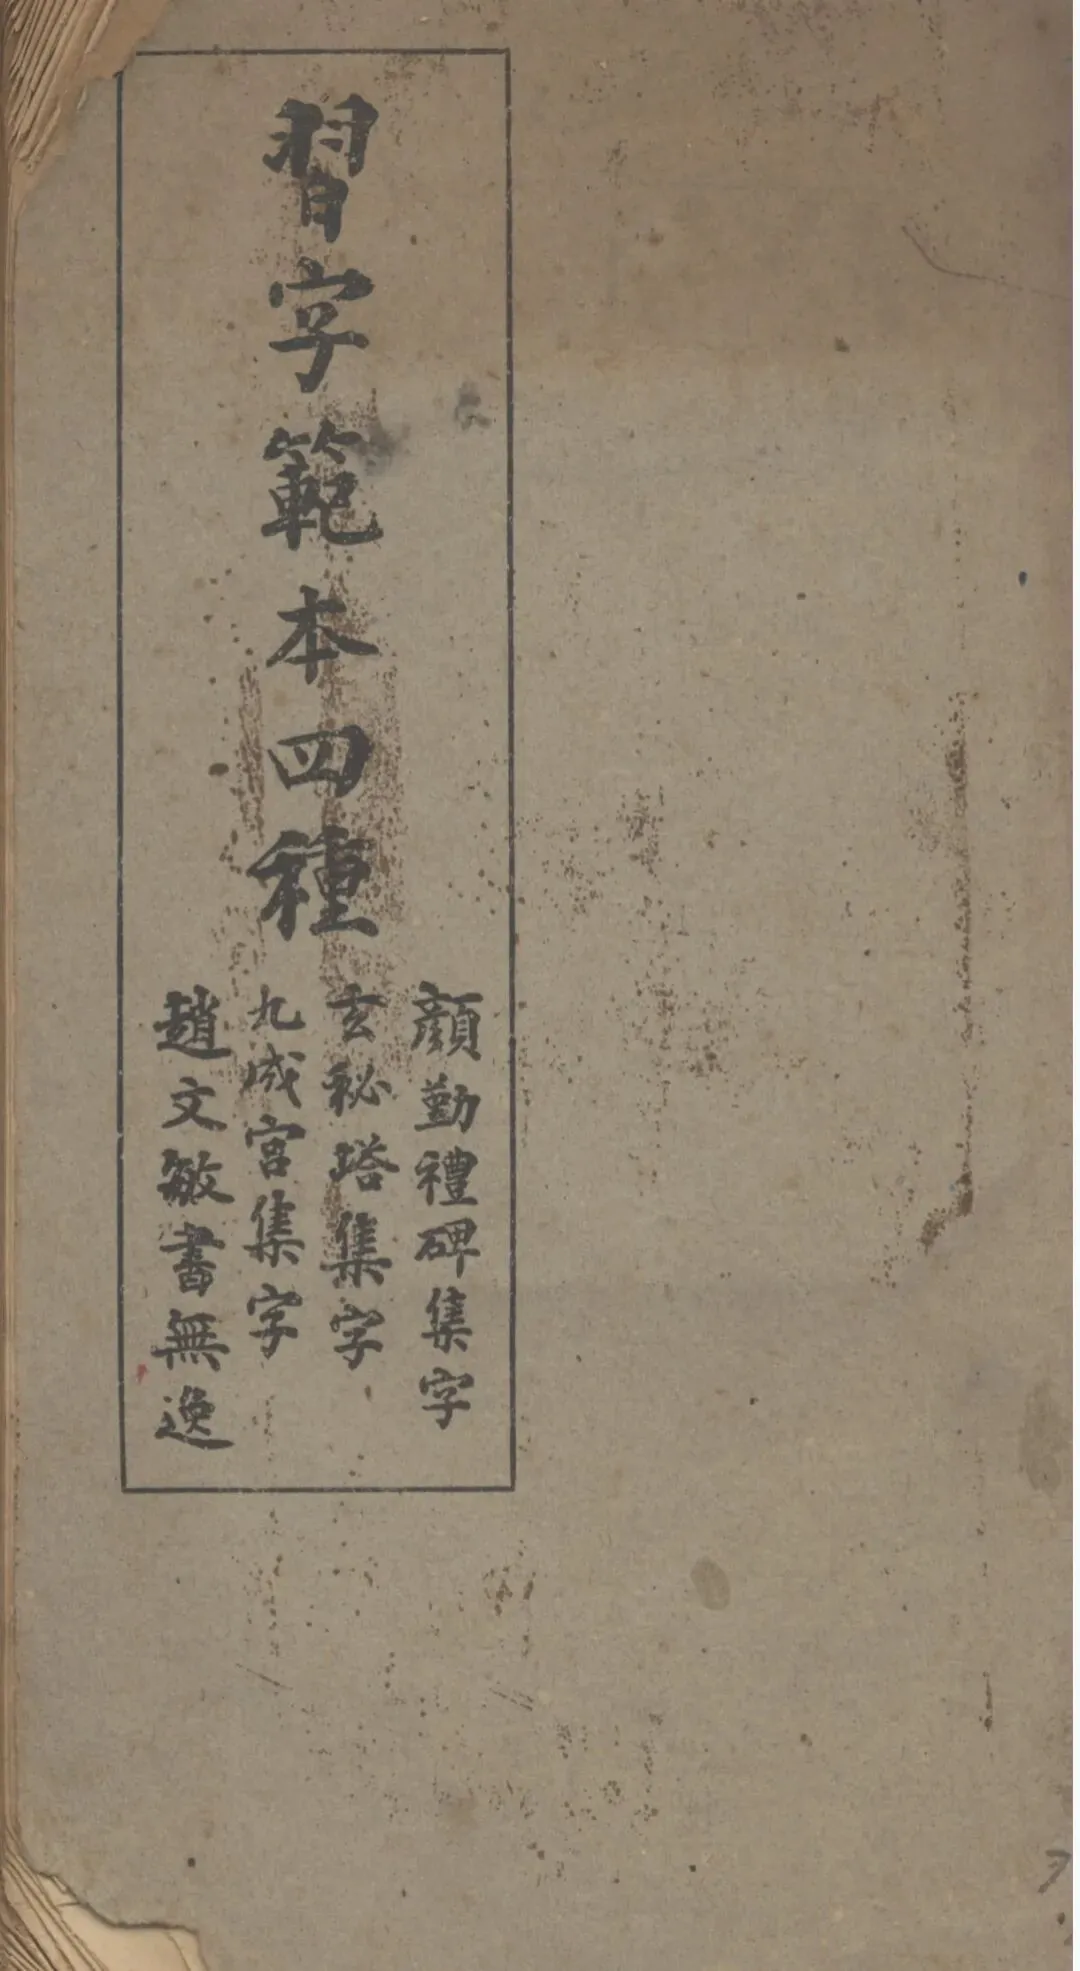 習字範本四種
顏勤禮碑集字
玄秘塔集字
九成宮集字
趙文敏書無逸